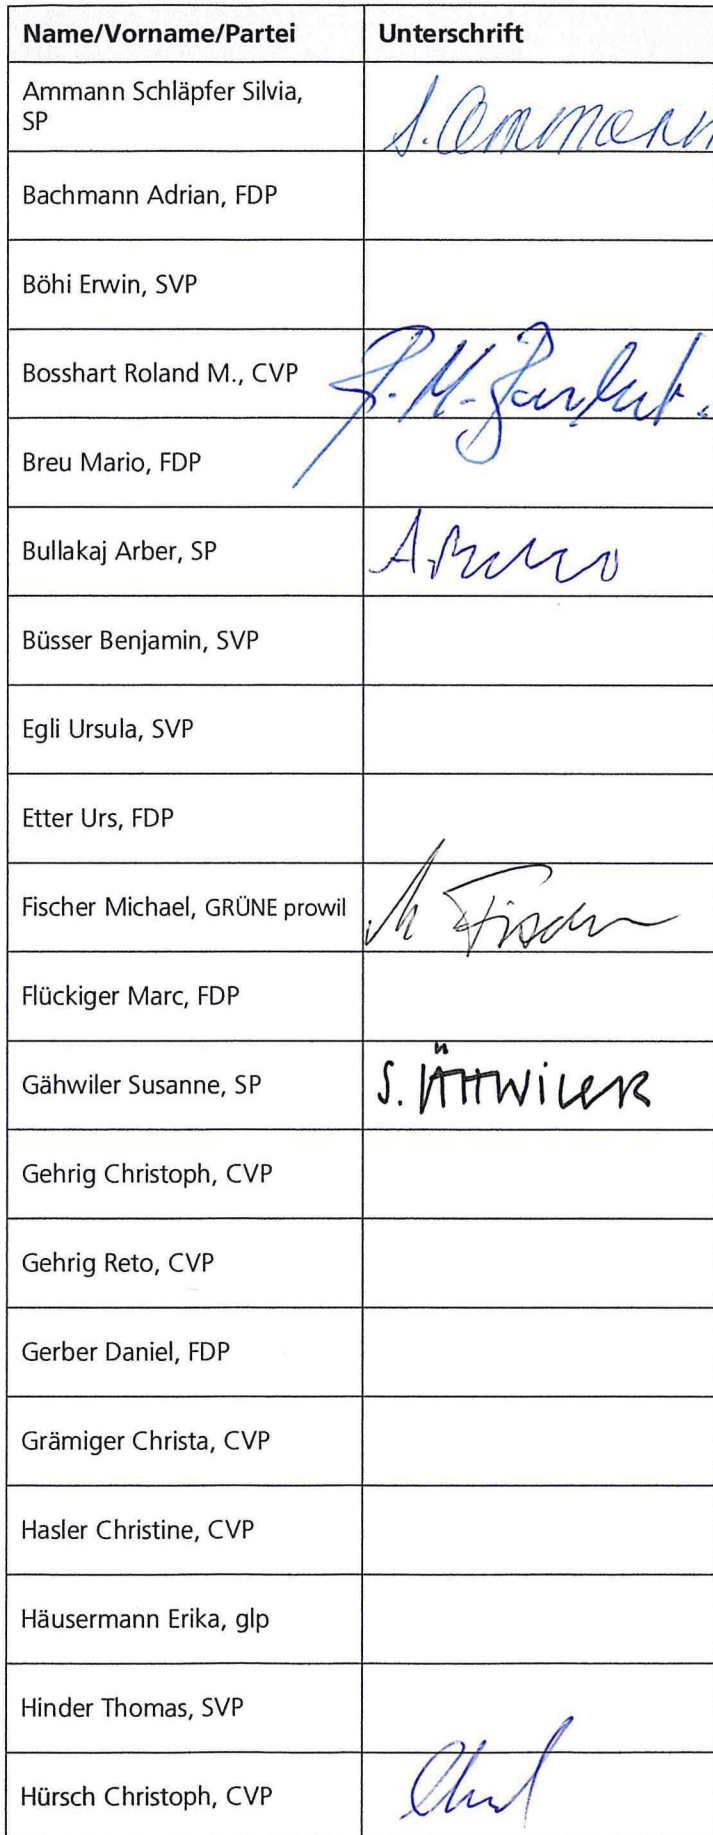 Name/Vorname/Partei Unterschrift
Ammann Schläpfer Silvia,
SP
S. Ammann
Bachmann Adrian, FDP
Böhi Erwin, SVP
Bosshart Roland M., CVP
Breu Mario, FDP
Bullakaj Arber, SP
Büsser Benjamin, SVP
Egli Ursula, SVP
Etter Urs, FDP
Fischer Michael, GRÜNE prowil M Fischer
Flückiger Marc, FDP
Gähwiler Susanne, SP S. GÄHWILER
Gehrig Christoph, CVP
Gehrig Reto, CVP
Gerber Daniel, FDP
Grämiger Christa, CVP
Hasler Christine, CVP
Häusermann Erika, glp
Hinder Thomas, SVP
Hürsch Christoph, CVP